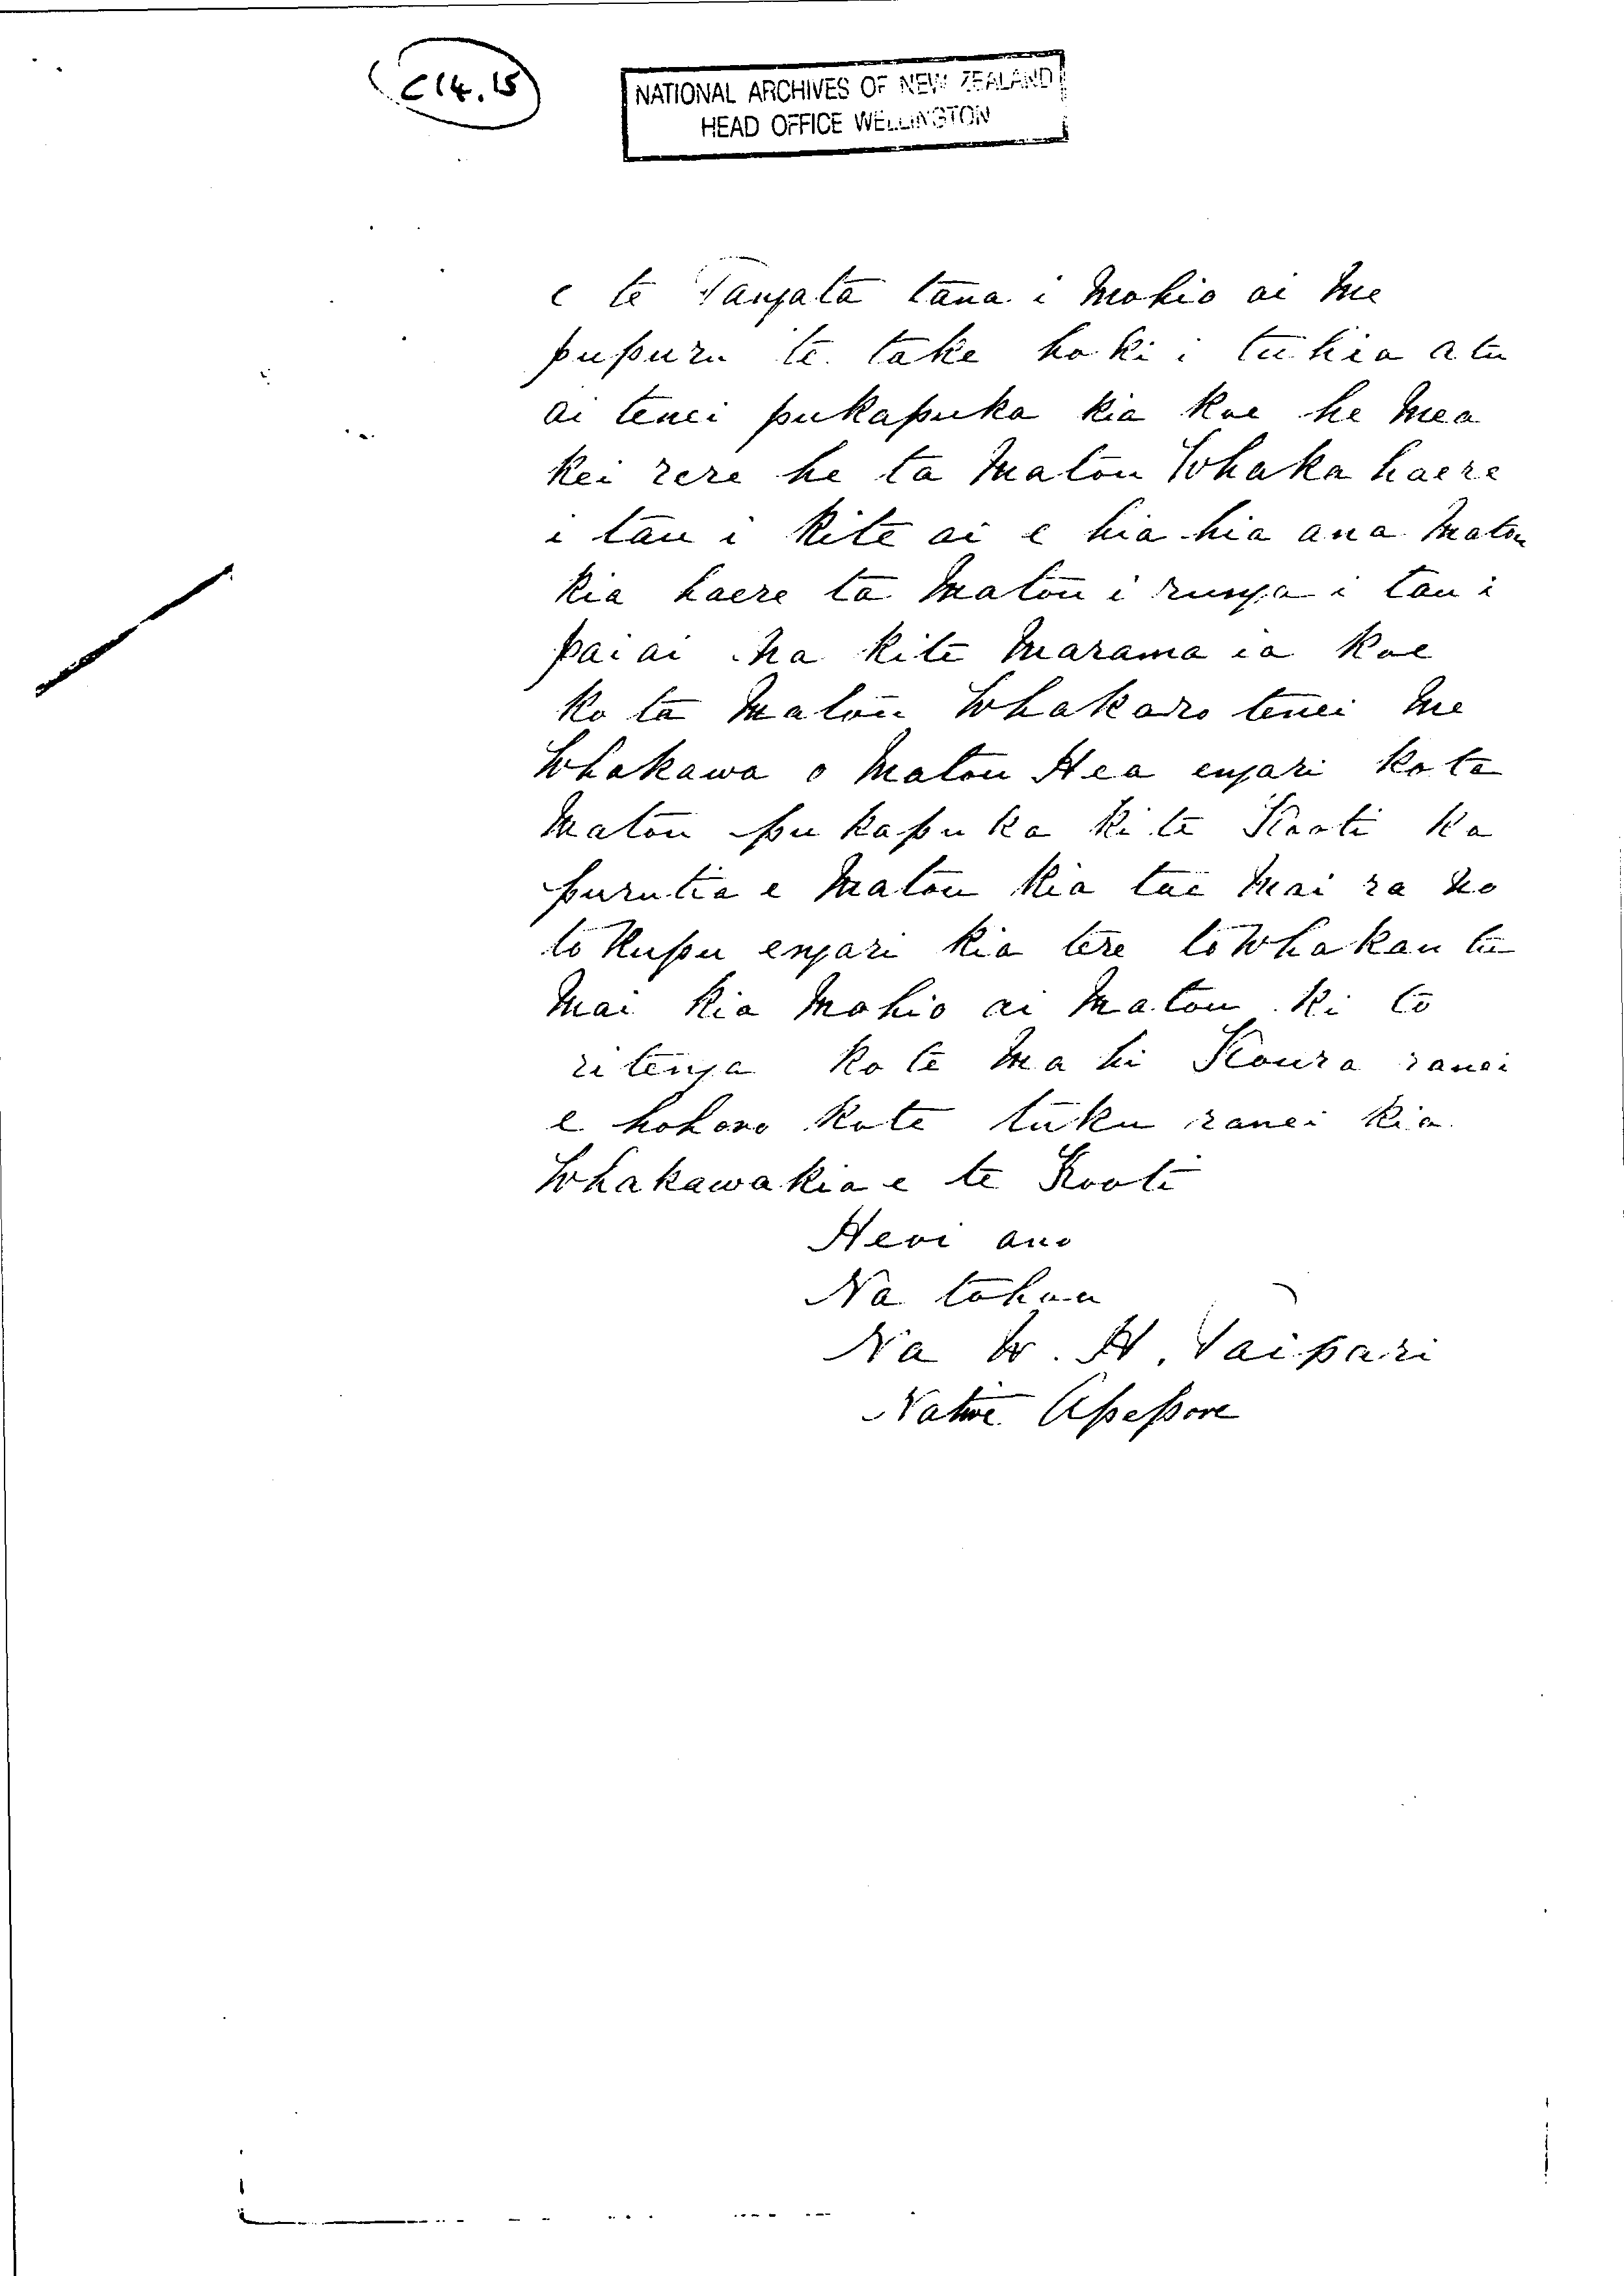 C14.15
NATIONAL ARCHIVES OF NEW ZEALAND
HEAD OFFICE WELLINGTON
e te Tangata tana i Mohio ai Me
pupuru te take hoki i tuhia atu
ai tenei pukapuka kia koe he Mea
kei rere he ta Matou Whaka haere
i tau i kite ai e hia hia ana Matou
kia haere ta Matou i runga i tau i
pai ai Na kite Marama ia koe
ko ta Matou Whakaro tenei Me
Whakawa o Matou Hea engari ko ta
Matou pu kapu ka ki te Kooti ka
purutia e Matou kia tae Mai ra no
to Kupu engari kia tere to Whakau tu
Mai kia Mohio ai Matou ki to
ritenga ko te Ma hi Koura ranei
e hohoro ko te tuku ranei kia
Whakawakia e te Kooti
Heoi ano
Na tohou
Na W. H. Taipari
Native Assessore